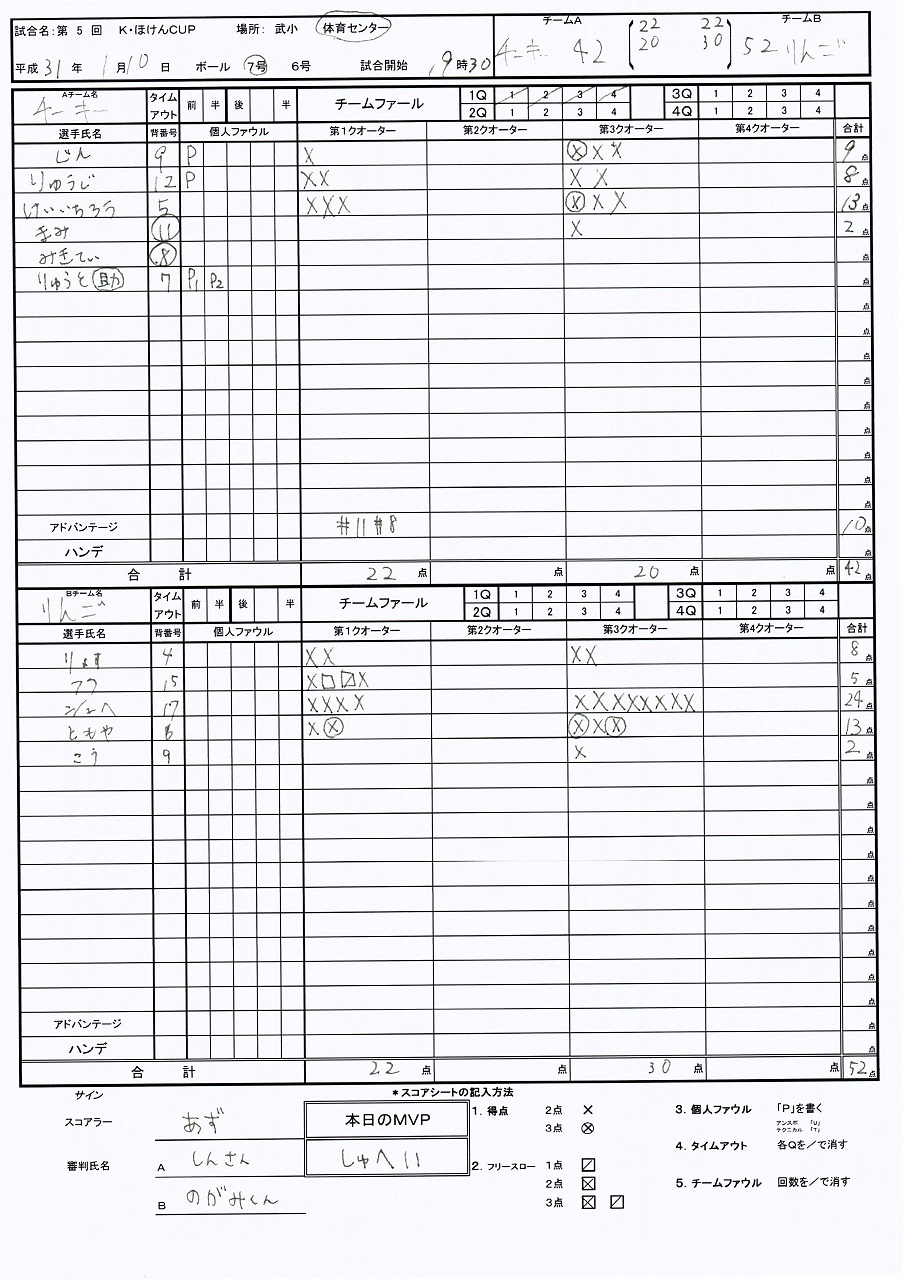 試合名:第 5 回 K・ほけんCUP 場所: 武小 体育センター
平成 31 年 1月10 日 ボール 7号 6号 試合開始 19時30
チームA チームB
チーキー 42 22 22 52 りんご
20 30
Aチーム名 タイムアウト 前 半 後 半 チームファール 1Q 1 2 3 4 3Q 1 2 3 4
チーキー 2Q 1 2 3 4 4Q 1 2 3 4
選手氏名 背番号 個人ファウル 第1クオーター 第2クオーター 第3クオーター 第4クオーター 合計
じん 9 P X ⓧ X X 9点
りゅうじ 12 P XX X X 8点
けいいちろう 5 XXX ⓧ X X 13点
まみ 11 X 2点
みきてぃ 8 点
りゅうと 助 7 P1 P2 点
点
点
点
点
点
点
点
点
点
アドバンテージ #11 #8 10点
ハンデ 点
合 計 22 点 点 20 点 点 42点
Bチーム名 タイムアウト 前 半 後 半 チームファール 1Q 1 2 3 4 3Q 1 2 3 4
りんご 2Q 1 2 3 4 4Q 1 2 3 4
選手氏名 背番号 個人ファウル 第1クオーター 第2クオーター 第3クオーター 第4クオーター 合計
りょす 4 XX XX 8点
15 X□〼X 5点
17 XXXX XXXXXXXX 24点
ともや 8 Xⓧ ⓧXⓧ 13点
こう 9 X 2点
点
点
点
点
点
点
点
点
点
点
アドバンテージ 点
ハンデ 点
合 計 22 点 点 30 点 点 52点
サイン *スコアシートの記入方法
スコアラー あず 本日のMVP
しゅへい
審判氏名 A しんさん
B のがみくん
1. 得点 2点 ×
3点 ⊗
2. フリースロー 1点 〼
2点 ☒
3点 ☒ 〼
3. 個人ファウル 「P」を書く
アンスポ 「U」
テクニカル 「T」
4. タイムアウト 各Qを/で消す
5. チームファウル 回数を/で消す